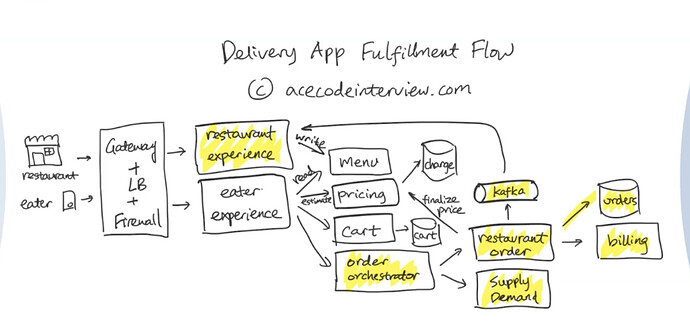 Delivery App Fulfillment Flow
© acecodeinterview.com
restaurant
eater
Gateway
+
LB
+
Firewall
restaurant
experience
eater
experience
write
read
estimate
menu
pricing
charge
cart
cart
order
orchestrator
finalize
price
kafka
restaurant
order
Supply
Demand
orders
billing